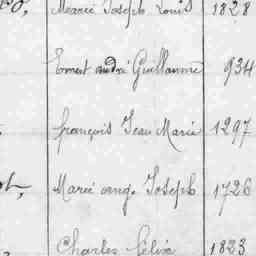 Marie Joseph Louis 1828
Ernest André Guillaume 934
françois Jean Marie 1297
Marie ange Joseph 1726
Charles 1823